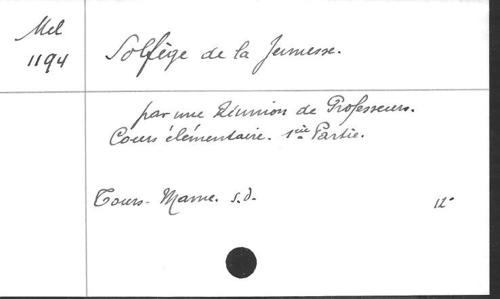 Mel
1194
Solfège de la Jeunesse.
par une Réunion de Professeurs.
Cours élémentaire. 1ère Partie.
Tours - Mame. s.d.
12°